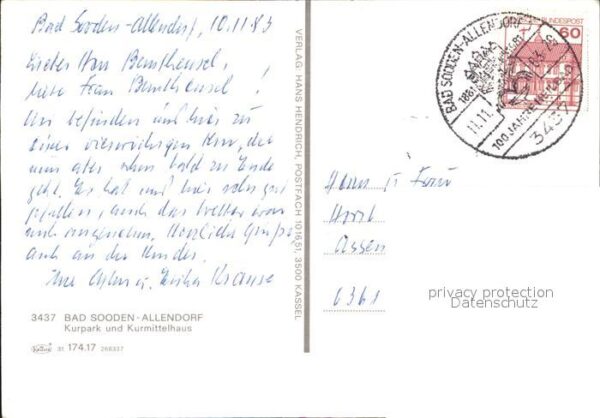 Bad Sooden-Allendorf, 10.11.83
Lieber Herr
liebe Frau
Wir befinden uns hier zu
einer vierwöchigen Kur, die
nun aber schon bald zu Ende
geht. Es hat uns hier sehr gut
gefallen, auch das Wetter war
auch angenehm. Herzliche Grüße
auch an die Kinder.
Ihre u. Erika Krause
3437 BAD SOODEN - ALLENDORF
Kurpark und Kurmittelhaus
31 174.17 268337
VERLAG: HANS HENDRICH, POSTFACH 101651, 3500 KASSEL
BAD SOODEN-ALLENDORF
1881
11.11.
100 JAHRE
3437
BUNDESPOST
60
Herrn u Frau
Horst
Assen
6361
privacy protection
Datenschutz